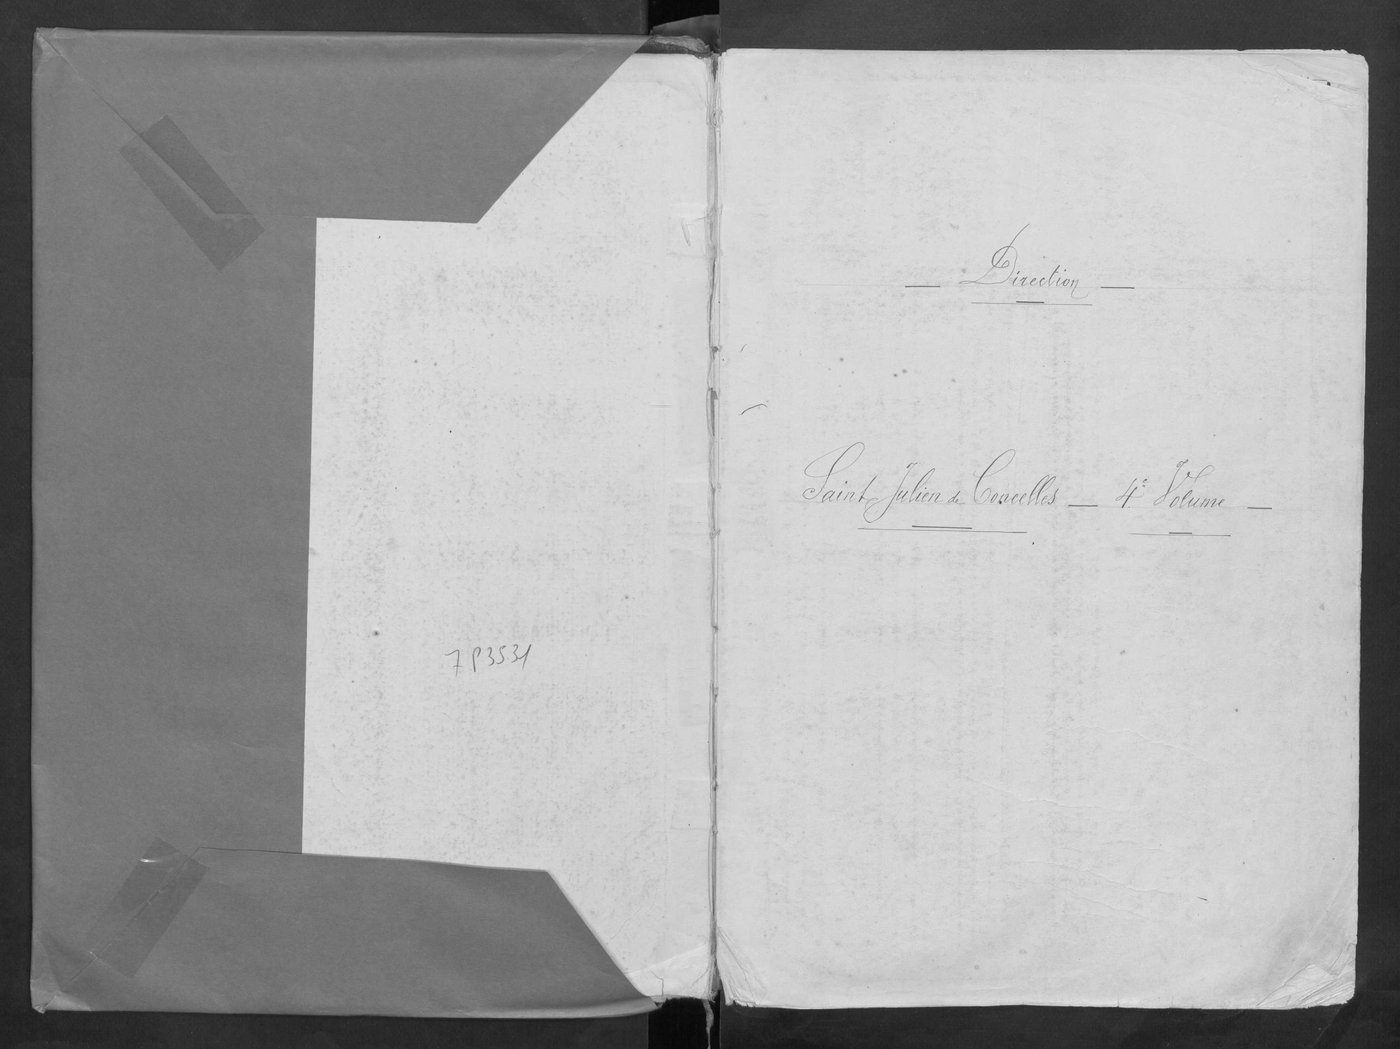 7 P 3531
— Direction —
Saint Julien de Concelles — 4e Volume —